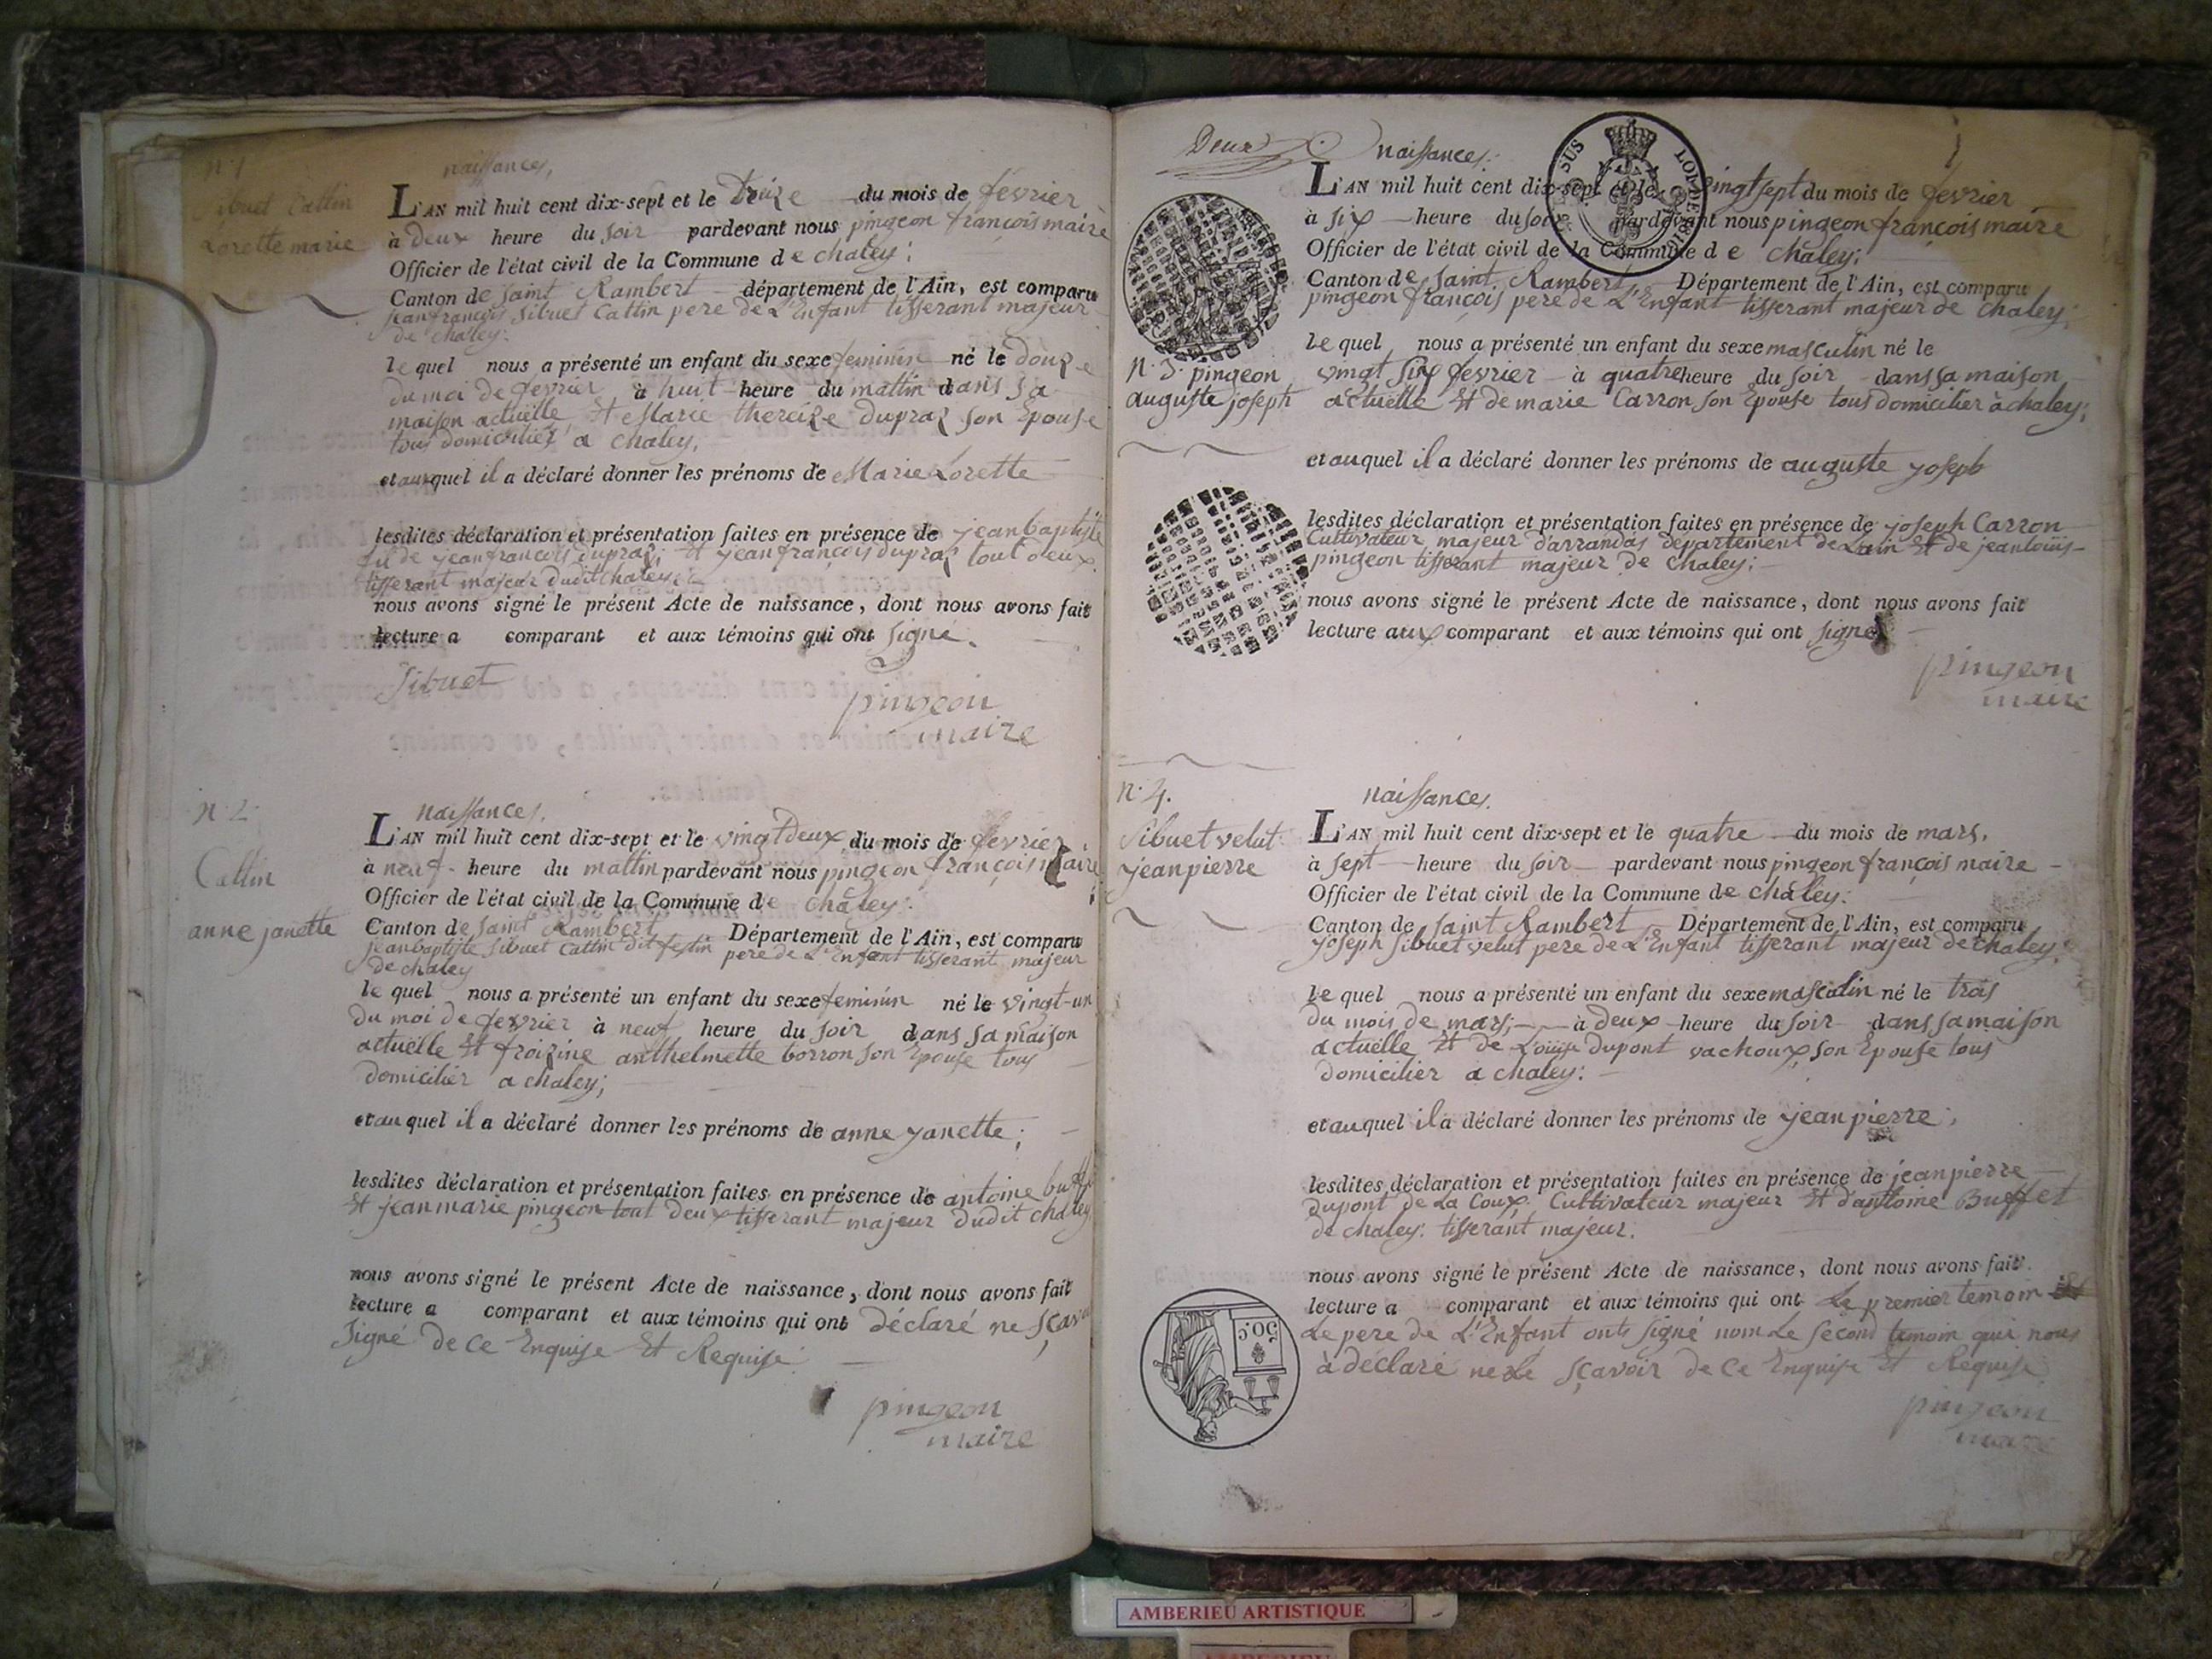 n. 1
Sibuet Cattin
Lorette marie
naissances,
L'AN mil huit cent dix-sept et le treize du mois de fevrier
à deux heure du soir pardevant nous pingeon françois maire
Officier de l'état civil de la Commune de chaley;
Canton de saint Rambert département de l'Ain, est comparu
jeanfrançois Sibuet Cattin pere de L'Enfant tisserant majeur
de chaley.
le quel nous a présenté un enfant du sexe feminin né le douze
du moi de fevrier à huit heure du mattin dans sa
maison actuelle Et Marie thereize dupraz son Epouse
tous domicilier a chaley,
et auquel il a déclaré donner les prénoms de Marie Lorette
lesdites déclaration et présentation faites en présence de jeanbaptiste
fil de jeanfrançois dupraz; Et jeanfrançois dupraz tout deux
tisserant majeur dudit chaley;
nous avons signé le présent Acte de naissance, dont nous avons fait
lecture a comparant et aux témoins qui ont signé.
Sibuet
pingeon
maire
n. 2
Cattin
anne janette
naissances.
L'AN mil huit cent dix-sept et le vingt deux du mois de fevrier
à neuf heure du mattin pardevant nous pingeon françois maire
Officier de l'état civil de la Commune de chaley.
Canton de saint Rambert Département de l'Ain, est comparu
jeanbaptiste Sibuet Cattin dit festin pere de L'Enfant tisserant majeur
de chaley
le quel nous a présenté un enfant du sexe feminin né le vingt-un
du moi de fevrier à neuf heure du soir dans sa maison
actuelle Et froizine anthelmette borron son Epouse tous
domicilier a chaley;
et au quel il a déclaré donner les prénoms de anne janette;
lesdites déclaration et présentation faites en présence de antoine
Et jeanmarie pingeon tout deux tisserant majeur dudit chaley
nous avons signé le présent Acte de naissance, dont nous avons fait
lecture a comparant et aux témoins qui ont déclaré ne
signé de ce Enquise Et Requise.
pingeon
maire
Deux
naissances.
L'AN mil huit cent dix-sept et le vingt sept du mois de fevrier
à six heure du soir pardevant nous pingeon françois maire
Officier de l'état civil de la Commune de chaley;
Canton de saint Rambert Département de l'Ain, est comparu
pingeon françois pere de L'Enfant tisserant majeur de chaley;
n. 3. pingeon
auguste joseph
le quel nous a présenté un enfant du sexe masculin né le
vingt six fevrier à quatre heure du soir dans sa maison
actuelle Et de marie Carron son Epouse tous domicilier à chaley;
et auquel il a déclaré donner les prénoms de auguste joseph
lesdites déclaration et présentation faites en présence de joseph Carron
Cultivateur majeur d'arrandas departement de Lain Et de jeanlouis
pingeon tisserant majeur de chaley;
nous avons signé le présent Acte de naissance, dont nous avons fait
lecture aux comparant et aux témoins qui ont signé
pingeon
maire
n. 4.
Sibuet velut
jeanpierre
naissances.
L'AN mil huit cent dix-sept et le quatre du mois de mars,
à sept heure du soir pardevant nous pingeon françois maire
Officier de l'état civil de la Commune de chaley.
Canton de saint Rambert Département de l'Ain, est comparu
joseph Sibuet velut pere de L'Enfant tisserant majeur de chaley.
le quel nous a présenté un enfant du sexe masculin né le trois
du mois de mars; à deux heure du soir dans sa maison
actuelle Et de Louise dupont vachoux son Epouse tous
domicilier a chaley.
et auquel il a déclaré donner les prénoms de jeanpierre;
lesdites déclaration et présentation faites en présence de jeanpierre
dupont de La Coux Cultivateur majeur Et d'antoine Buffet
de chaley: tisserant majeur.
nous avons signé le présent Acte de naissance, dont nous avons fait
lecture a comparant et aux témoins qui ont Le premier temoin
Le pere de L'Enfant onts signé nom Le second temoin qui nous
à déclaré ne Le sçavoir de ce Enquise Et Requise
50 c.
pingeon
maire
AMBERIEU ARTISTIQUE
AMBERIEU